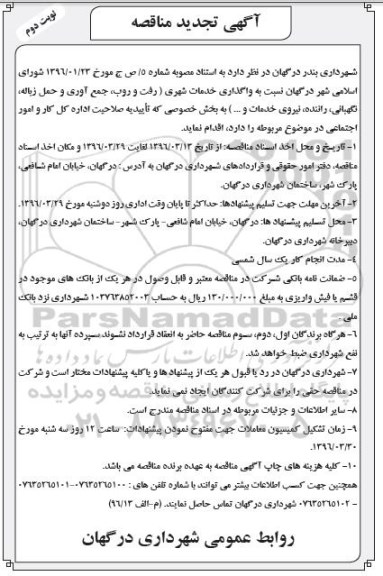 نوبت دوم
آگهی تجدید مناقصه
شهرداری بندر درگهان در نظر دارد به استناد مصوبه شماره ۵/ ص ج مورخ ۱۳۹۶/۰۱/۲۳ شورای
اسلامی شهر درگهان نسبت به واگذاری خدمات شهری ( رفت و روب، جمع آوری و حمل زباله،
نگهبانی، راننده، نیروی خدمات و ... ) به بخش خصوصی که تأییدیه صلاحیت اداره کل کار و امور
اجتماعی در موضوع مربوطه را دارد، اقدام نماید.
۱- تاریخ و محل اخذ اسناد مناقصه: از تاریخ ۱۳۹۶/۰۳/۱۳ لغایت ۱۳۹۶/۰۳/۲۹ و مکان اخذ اسناد
مناقصه، دفتر امور حقوقی و قراردادهای شهرداری درگهان به آدرس : درگهان، خیابان امام شافعی،
پارک شهر، ساختمان شهرداری درگهان.
۲- آخرین مهلت جهت تسلیم پیشنهادها: حداکثر تا پایان وقت اداری روز دوشنبه مورخ ۱۳۹۶/۰۳/۲۹.
۳- محل تسلیم پیشنهاد ها: درگهان، خیابان امام شافعی- پارک شهر- ساختمان شهرداری درگهان،
دبیرخانه شهرداری درگهان.
۴- مدت انجام کار یک سال شمسی
۵- ضمانت نامه بانکی شرکت در مناقصه معتبر و قابل وصول در هر یک از بانک های موجود در
قشم یا فیش واریزی به مبلغ ۱۳۰/۰۰۰/۰۰۰ ریال به حساب ۱۰۳۷۶۳۸۵۲۰۰۳ شهرداری نزد بانک
ملی.
۶- هرگاه برندگان اول، دوم، سوم مناقصه حاضر به انعقاد قرارداد نشوند سپرده آنها به ترتیب به
نفع شهرداری ضبط خواهد شد.
۷- شهرداری درگهان در رد یا قبول هر یک از پیشنهاد ها و یا کلیه پیشنهادات مختار است و شرکت
در مناقصه حقی را برای شرکت کنندگان ایجاد نمی نماید.
۸- سایر اطلاعات و جزئیات مربوطه در اسناد مناقصه مندرج است.
۹- زمان تشکیل کمیسیون معاملات جهت مفتوح نمودن پیشنهادات: ساعت ۱۲ روز سه شنبه مورخ
۱۳۹۶/۰۳/۳۰.
۱۰- کلیه هزینه های چاپ آگهی مناقصه به عهده برنده مناقصه می باشد.
همچنین جهت کسب اطلاعات بیشتر می توانند با شماره تلفن های : ۰۷۶۳۵۲۶۵۱۰۰-۰۷۶۳۵۲۶۵۱۰۱
- ۰۷۶۳۵۲۶۵۱۰۲ شهرداری درگهان تماس حاصل نمایند. (م-الف ۹۶/۱۳)
روابط عمومی شهرداری درگهان
ParsNamadData